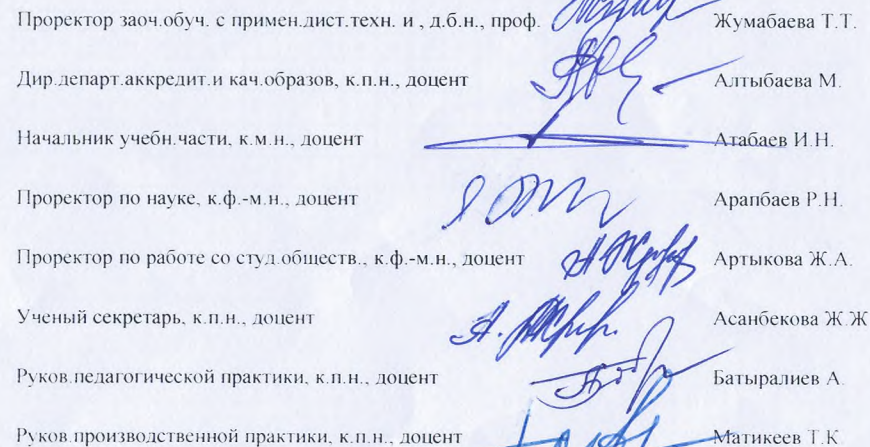 Проректор заоч.обуч. с примен.дист.техн. и , д.б.н., проф. Жумабаева Т.Т.
Дир.департ.аккредит.и кач.образов, к.п.н., доцент Алтыбаева М.
Начальник учебн.части, к.м.н., доцент Атабаев И.Н.
Проректор по науке, к.ф.-м.н., доцент Арапбаев Р.Н.
Проректор по работе со студ.обществ., к.ф.-м.н., доцент Артыкова Ж.А.
Ученый секретарь, к.п.н., доцент Асанбекова Ж.Ж
Руков.педагогической практики, к.п.н., доцент Батыралиев А.
Руков.производственной практики, к.п.н., доцент Матикеев Т.К